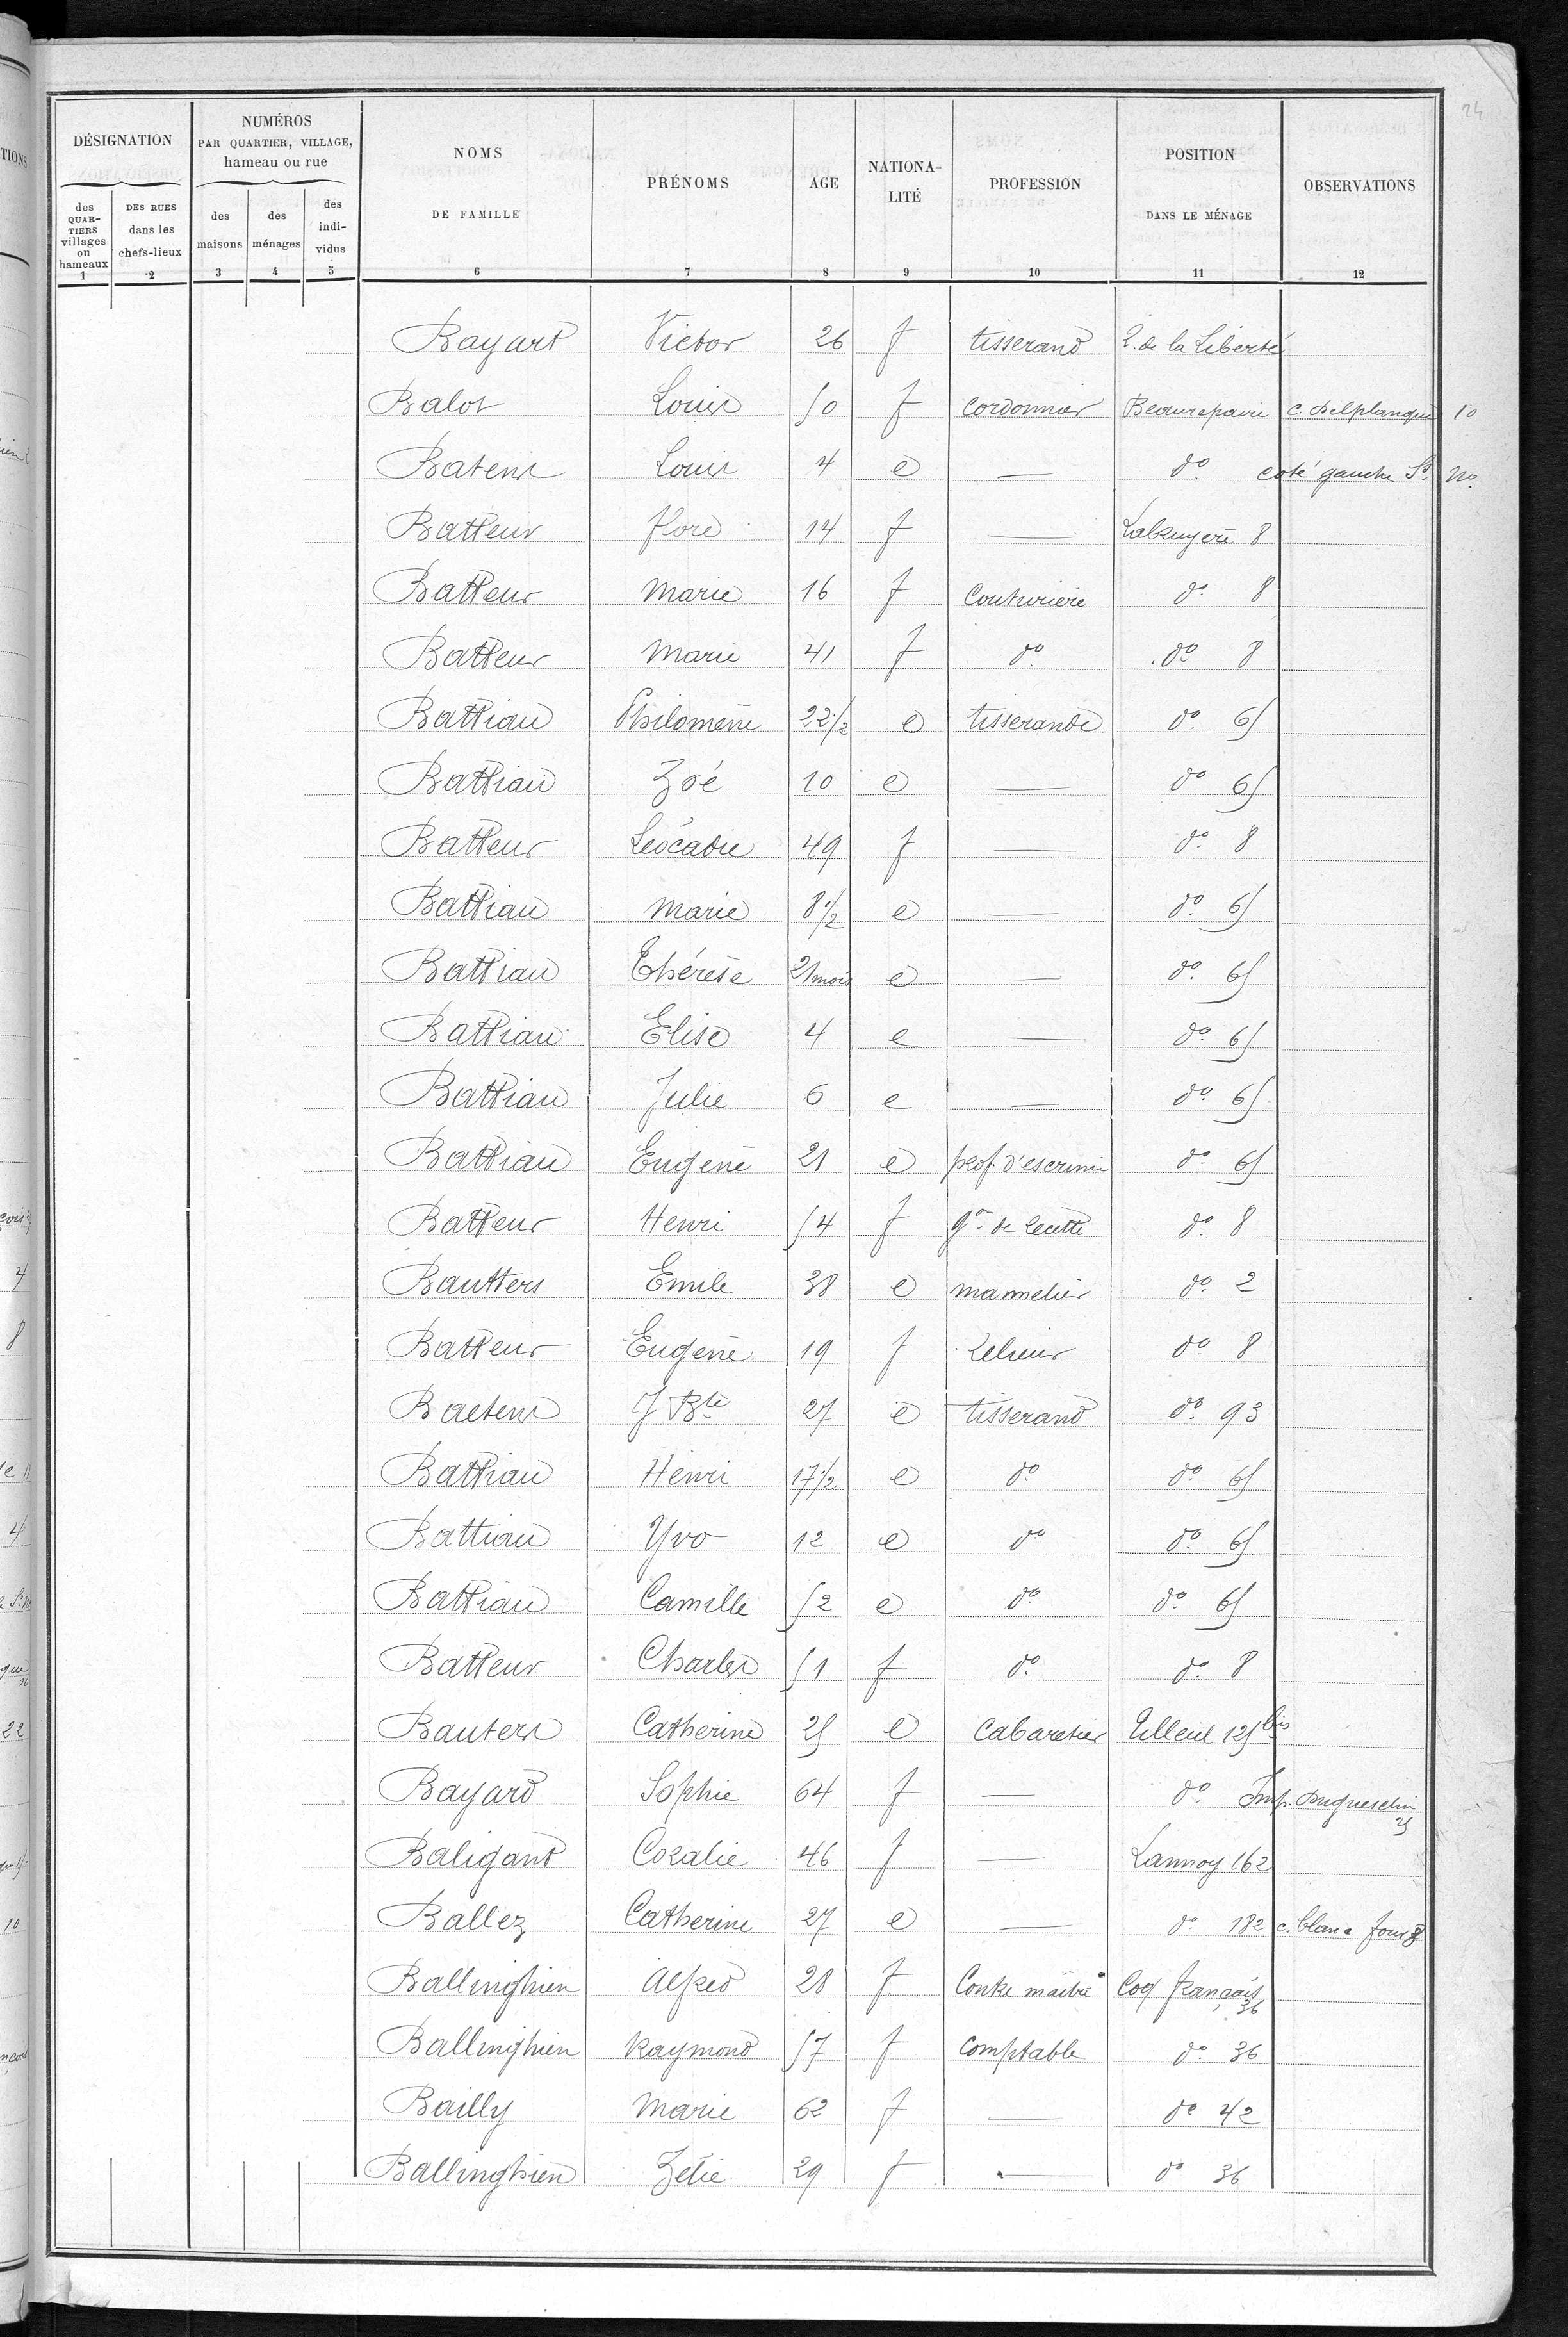 24
DÉSIGNATION
NUMÉROS
PAR QUARTIER, VILLAGE,
hameau ou rue
NOMS
DE FAMILLE
PRÉNOMS
AGE
NATIONA-
LITÉ
PROFESSION
POSITION
DANS LE MÉNAGE
OBSERVATIONS
des
QUAR-
TIERS
villages
ou
hameaux
DES RUES
dans les
chefs-lieux
des
maisons
des
ménages
des
indi-
vidus
1 2 3 4 5 6 7 8 9 10 11 12
Bayart Victor 26 f tisserand R. de la Liberté
Balot Louis 50 f cordonnier Beaurepaire c. Delplanque 10
Batens Louis 4 e — do coté gauche St. No
Batteur Flore 14 f — Labruyère 8
Batteur Marie 16 f Couturière do 8
Batteur Marie 41 f do do 8
Battiau Philomène 22 1/2 e tisserande do 65
Battiau Zoé 10 e — do 65
Batteur Léocadie 49 f — do 8
Battiau Marie 8 1/2 e — do 65
Battiau Thérèse 21 mois e — do 65
Battiau Elise 4 e — do 65
Battiau Julie 6 e — do 65
Battiau Eugène 21 e prof. d'escrime do 65
Batteur Henri 54 f de do 8
Bautters Emile 38 e do 2
Batteur Eugène 19 f Relieur do 8
Baetens J Bte 27 e tisserand do 93
Battiau Henri 17 1/2 e do do 65
Battiau Yvo 12 e do do 65
Battiau Camille 52 e do do 65
Batteur Charles 51 f do do 8
Bauters Catherine 25 e Cabaretier Tilleul 125 bis
Bayard Sophie 64 f — do Imp. Duguesclin 25
Baligand Coralie 46 f — Lannoy 162
Ballez Catherine 27 e — do 182 c. blanc four 8
Ballinghien Alfred 28 f Contre maître Coq français 36
Ballinghien Raymond 57 f Comptable do 36
Bailly Marie 62 f — do 42
Ballinghien Zélie 29 f — do 36